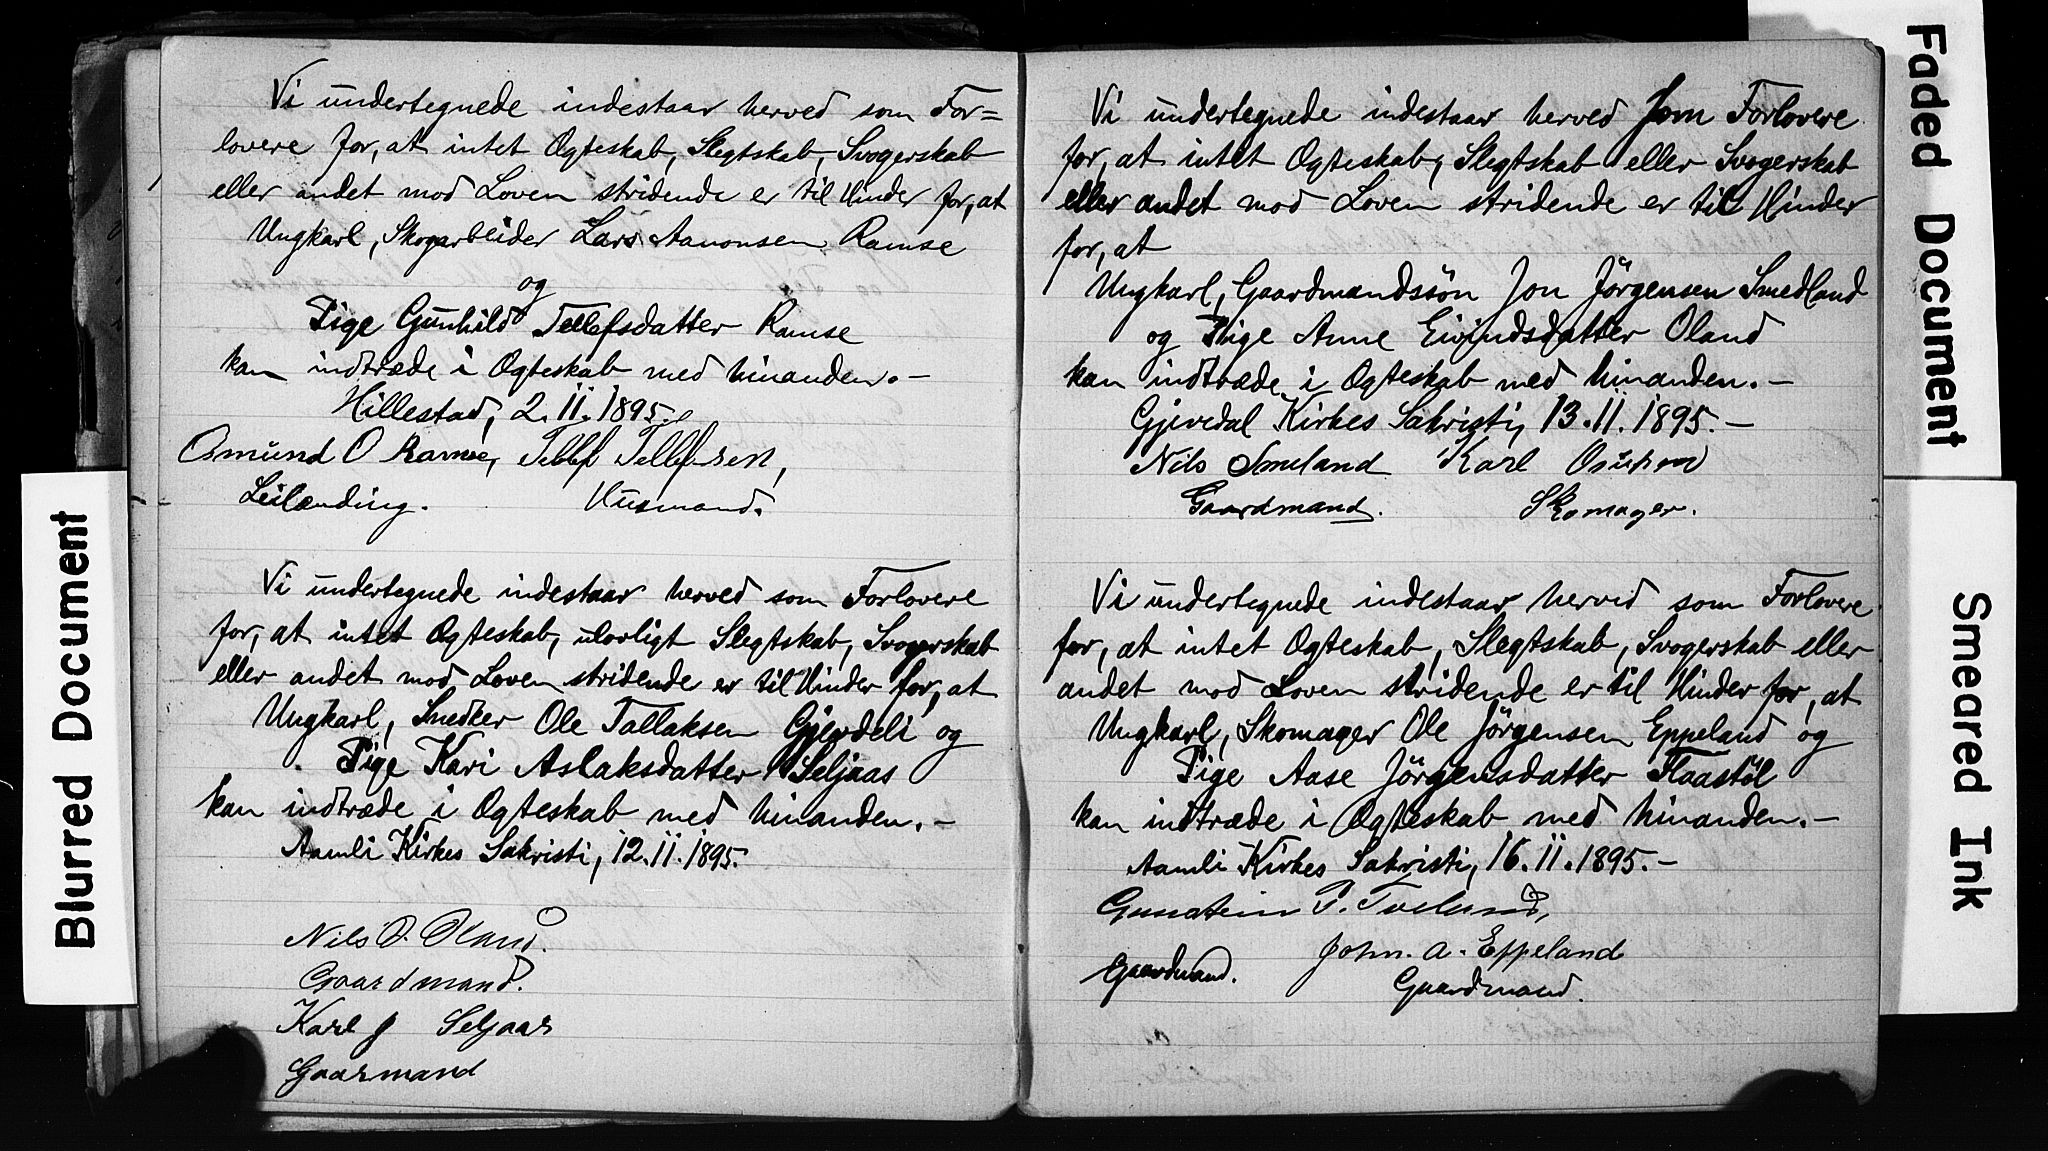 Vi undertegnede indestaar herved som For=
lovere for, at intet Ægteskab, Slegtskab, Svogerskab
eller andet mod Loven stridende er til Hinder for, at
Ungkarl, Skogarbeider Lars Aanonsen Ramse
og
Pige Gunhild Tellefsdatter Ramse
kan indtræde i Ægteskab med hinanden. –
Hillestad, 2.11.1895.
Osmund O Ramse, Tellef Tellefsen,
Leilænding. Husmand.
Vi undertegnede indestaar herved som Forlovere
for, at intet Ægteskab, ulovligt Slegtskab, Svogerskab
eller andet mod Loven stridende er til Hinder for, at
Ungkarl, Snedker Ole Tallaksen Gjevdeli og
Pige Kari Aslaksdatter Seljaas
kan indtræde i Ægteskab med hinanden. –
Aamli Kirkes Sakristi, 12.11.1895.
Nils O. Øland.
Gaardmand.
Karl J Seljaas
Gaarmand
Vi undertegnede indestaar herved som Forlovere
for, at intet Ægteskab, Slegtskab eller Svogerskab
eller andet mod Loven stridende er til Hinder
for, at
Ungkarl, Gaardmandssön Jon Jörgensen Smedland
og Pige Anne Eivindsdatter Øland
kan indtræde i Ægteskab med hinanden. –
Gjevedal Kirkes Sakristi, 13.11.1895. –
Nils Smeland Karl
Gaardmand. Skomager.
Vi undertegnede indestaar herved som Forlovere
for, at intet Ægteskab, Slegtskab, Svogerskab eller
andet mod Loven stridende er til Hinder for, at
Ungkarl, Skomager Ole Jörgensen Eppeland og
Pige Aase Jörgensdatter Flaastöl
kan indtræde i Ægteskab med hinanden. –
Aamli Kirkes Sakristi, 16.11.1895. –
Gunstein P. Tveland,
John. A. Eppeland
Gaardmand. Gaardmand.
Blurred Document
Faded Document
Smeared Ink